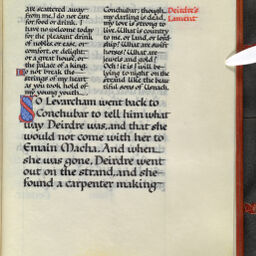 are scattered away
from me. I do not care
for food or drink. I
have no welcome today
for the pleasant drink
of nobles, or ease, or
comfort, or delight;
or a great house, or
the palace of a king.
Do not break the
strings of my heart
as you took hold of
my young youth
Conchubar; though
my darling is dead,
my love is strong to
live. What is country
to me, or land, or lord
ship? What are swift
horses? What are
jewels and gold?
Och! it is I will be ly-
ing to-night on the
strand like the beau
tiful sons of Usnach.
Deirdre's
Lament
SO Levarcham went back to
Conchubar to tell him what
way Deirdre was, and that she
would not come with her to
Emain Macha. And when
she was gone, Deirdre went
out on the strand, and she
found a carpenter making